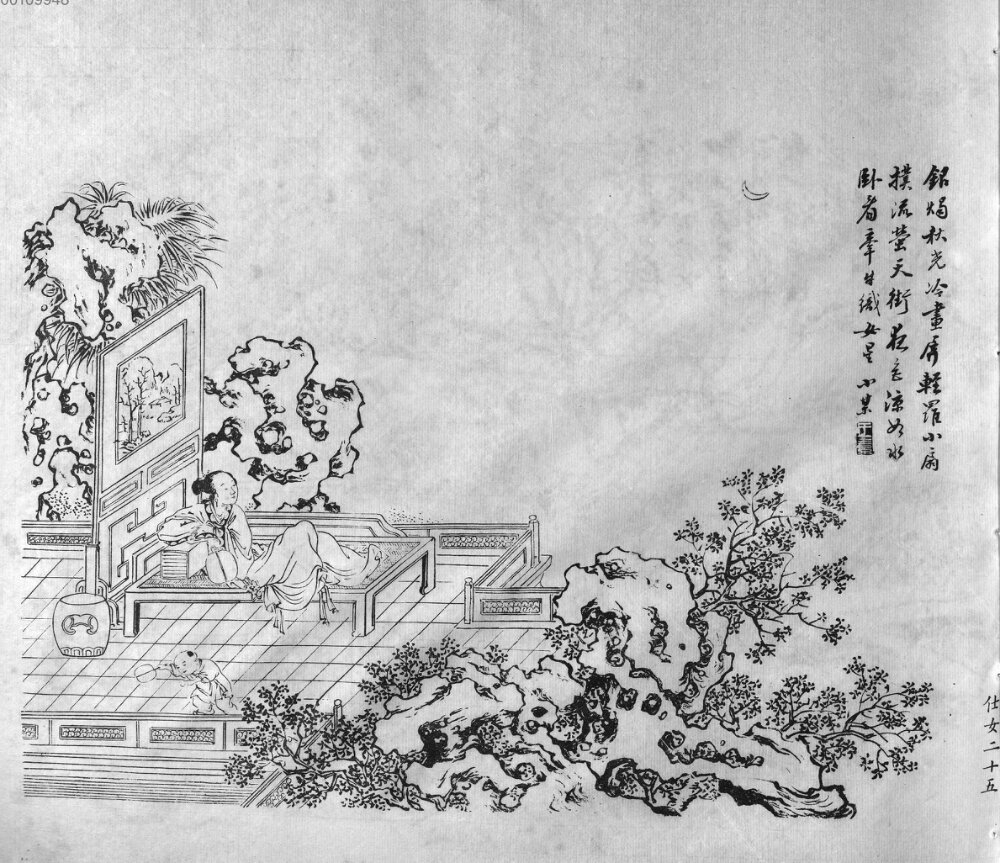 00109948
銀燭秋光冷畫屏輕羅小扇
撲流螢天街夜色涼如水
卧看牽牛織女星 小某
仕女二十五